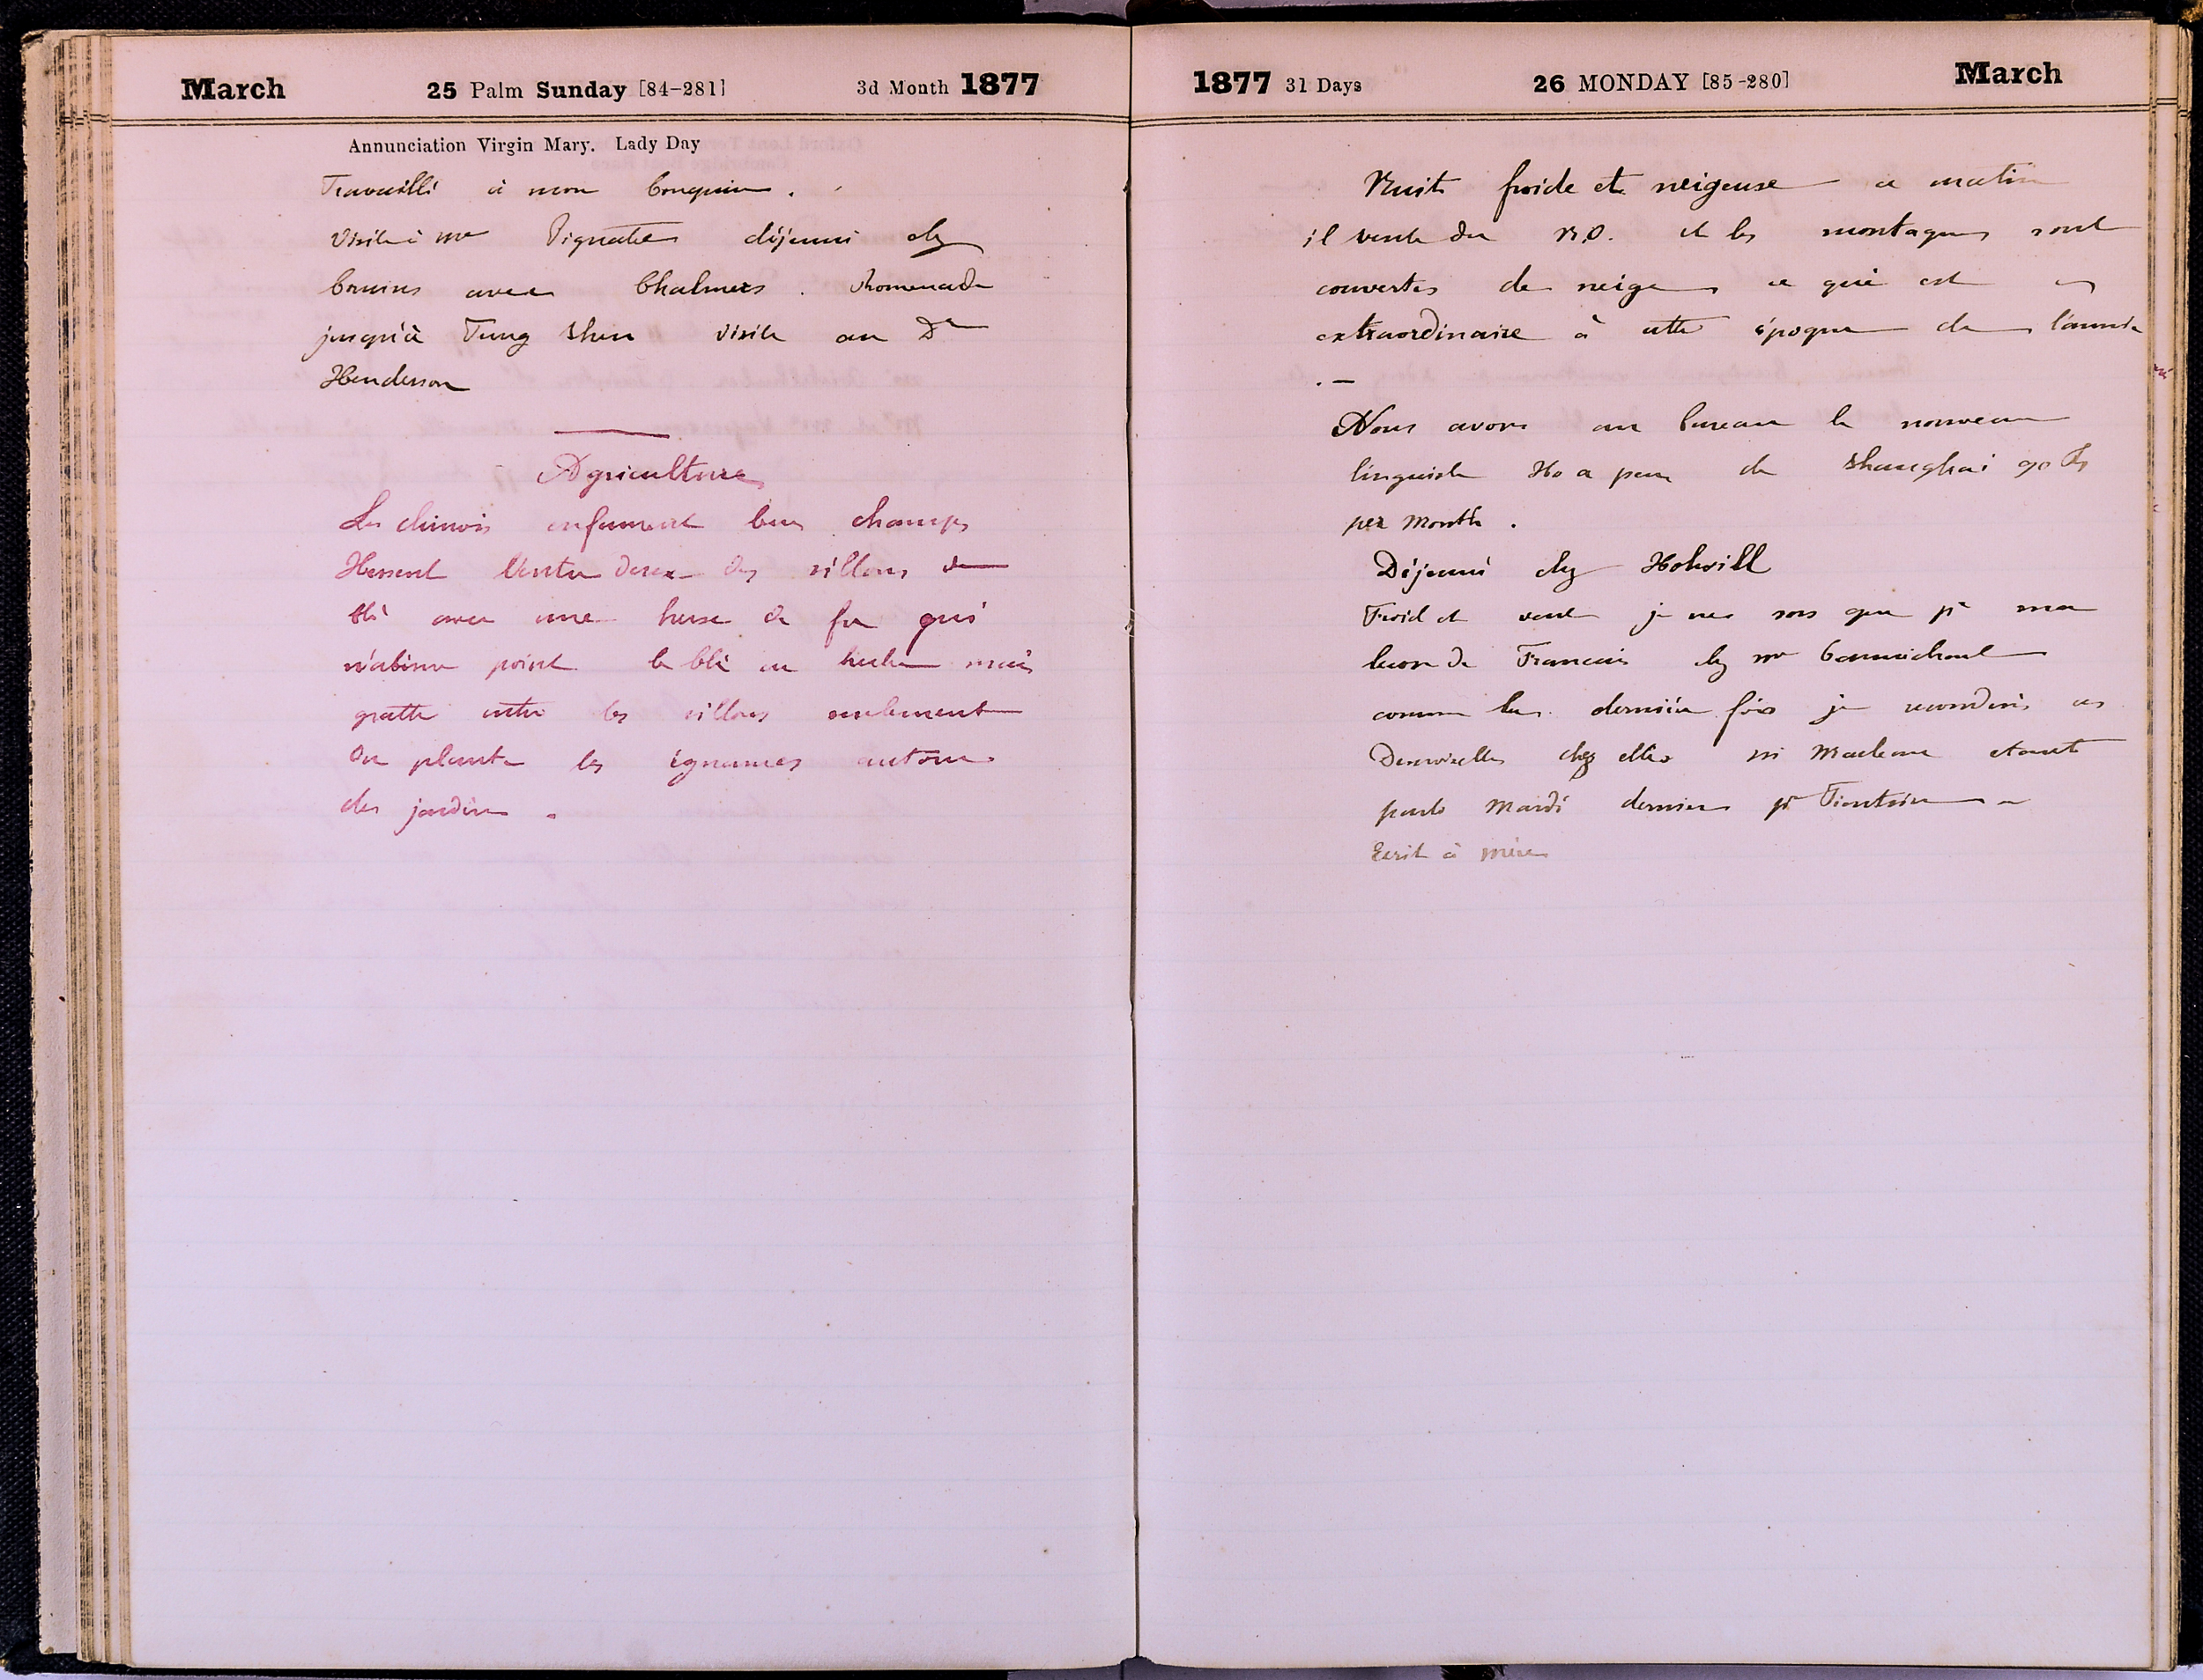 March 25 Palm Sunday [84-281] 3d Month 1877
Annunciation Virgin Mary. Lady Day
Travaillé à mon bouquin.
Visite à Mr déjeuné chz
Cruins avec Chalmers. Promenade
jusqu'à Tung Shin visite au Dr
Henderson
Agriculture
Les chinois enfument leurs champs
Hersent l'entre deux des sillons de
blé avec une herse de fer qui
n'abime point le blé en herbe mais
gratte entre les sillons seulement
On plante les ignames autour
des jardins.
1877 31 Days 26 MONDAY [85-280] March
Nuit froide et neigeuse ce matin
il vente du N.O. et les montagnes sont
couvertes de neige ce qui est
extraordinaire à cette époque de l'année
. —
Nous avons au bureau le nouveau
linguiste Ho a pan de Shanghai 90 Ts
per Month.
Déjeuné chz Holwill
Froid et vent je ne sors que pr ma
lecon de Francais chz Mr Carmichael
comme la dernière fois je reconduis ces
Demoiselles chez elles Mr Maclean etant
parti Mardi dernier pr Tientsin
Ecrit à mère